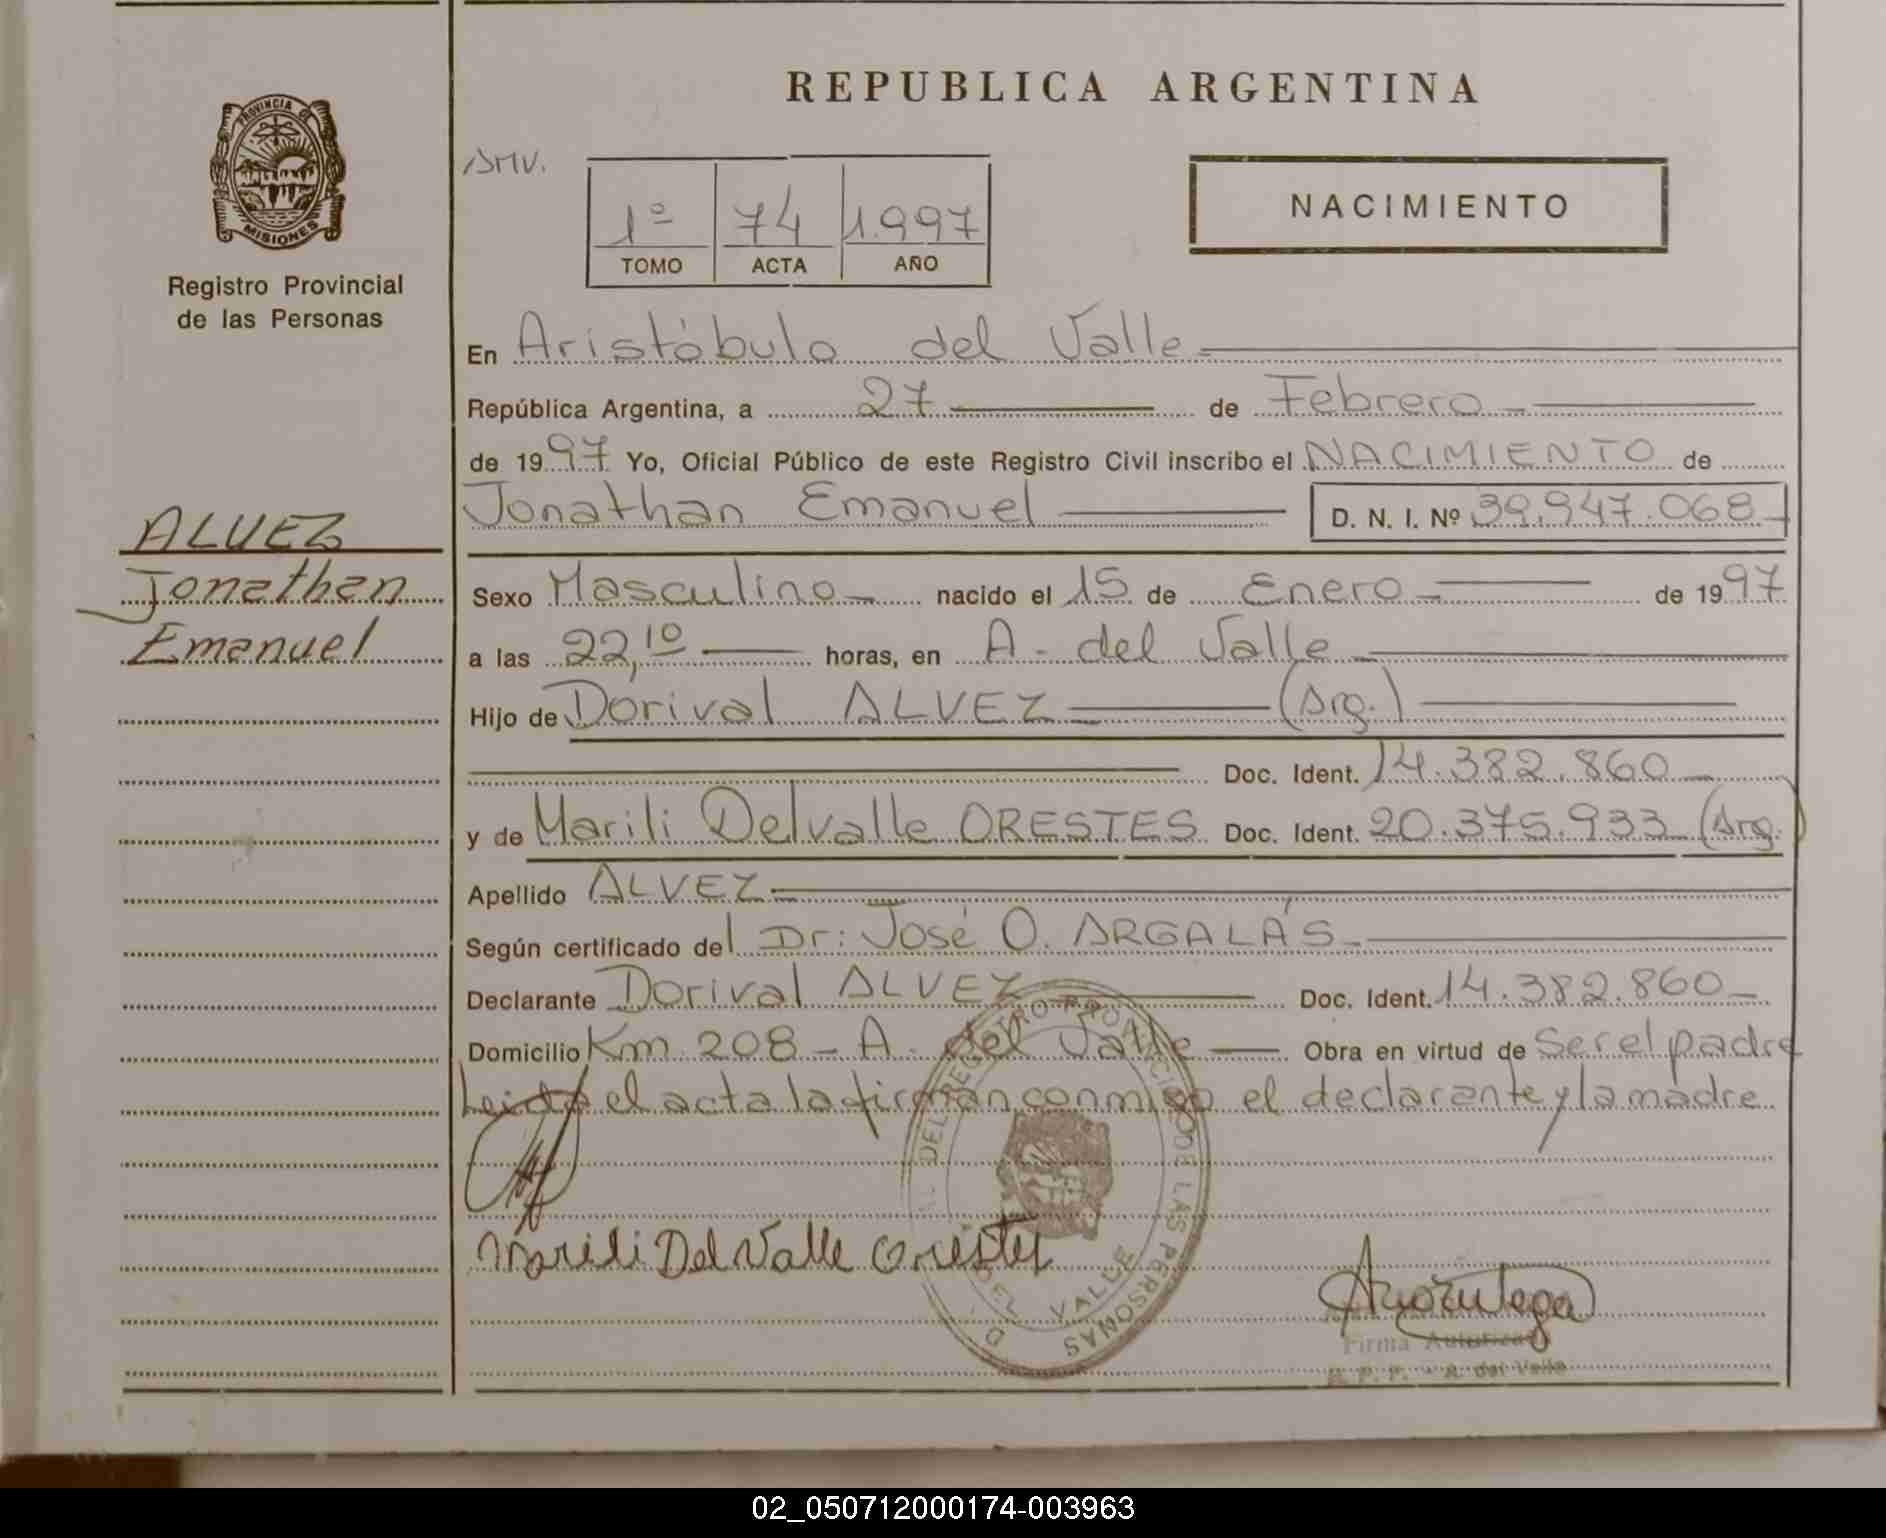 REPUBLICA ARGENTINA
PROVINCIA DE
MISIONES
Registro Provincial
de las Personas
SMV.
1º 74 1.997
TOMO ACTA AÑO
NACIMIENTO
En Aristóbulo del Valle
República Argentina, a 27 de Febrero
de 1997 Yo, Oficial Público de este Registro Civil inscribo el NACIMIENTO de
Jonathan Emanuel D. N. I. Nº 39.947.068
ALVEZ
Jonathan
Emanuel
Sexo Masculino nacido el 15 de Enero de 1997
a las 22,10 horas, en A. del Valle
Hijo de Dorival ALVEZ (Arg.)
Doc. Ident. 14.382.860
y de Marili Delvalle ORESTES Doc. Ident. 20.375.933 (Arg.)
Apellido ALVEZ
Según certificado del Dr: José O. ARGALÁS
Declarante Dorival ALVEZ Doc. Ident. 14.382.860
Domicilio Km 208 - A. del Valle Obra en virtud de Ser el padre
Leida el acta la firman conmigo el declarante y la madre
DEL REGISTRO PROVINCIAL DE LAS PERSONAS
DEL VALLE
Marili Del Valle Orestes
Firma Autorizada
R. P. P. - A. del Valle
02_050712000174-003963